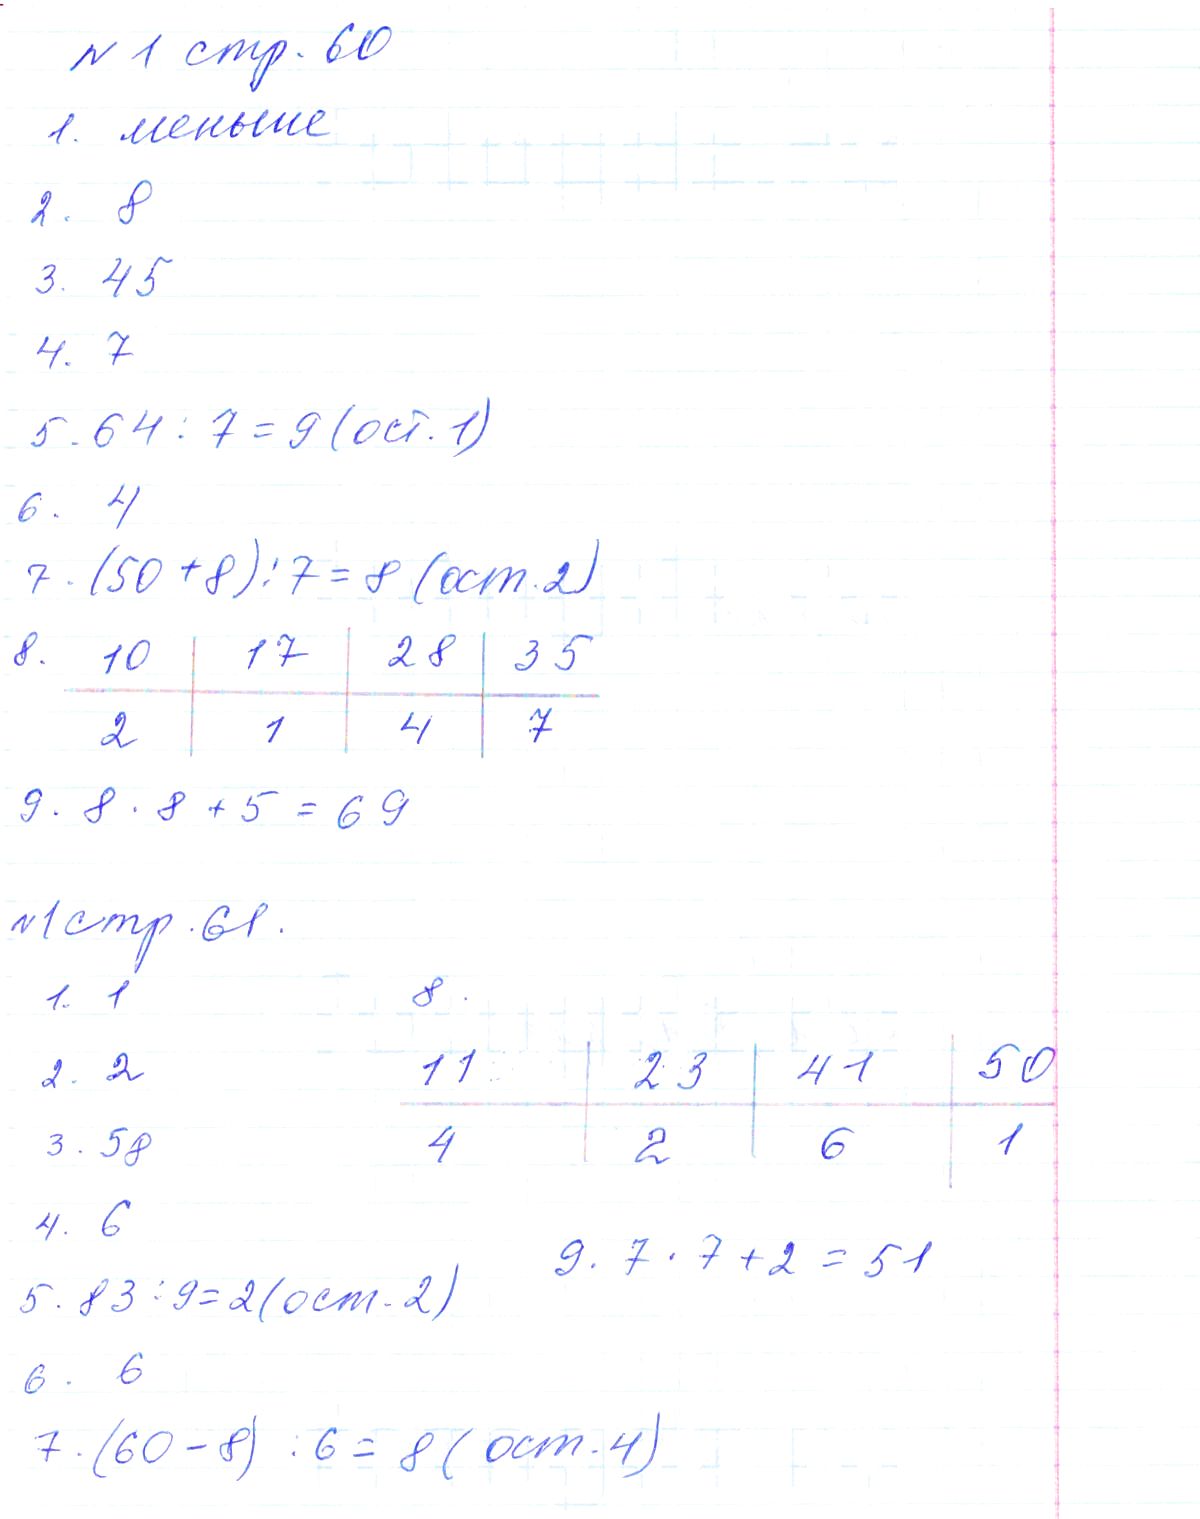 № 1 стр. 60
1. меньше
2. 8
3. 45
4. 7
5. 64 : 7 = 9 (ост. 1)
6. 4
7. (50 + 8) : 7 = 8 (ост. 2)
8. 10 17 28 35
2 1 4 7
9. 8 · 8 + 5 = 69
№1 стр. 61.
1. 1
2. 2
3. 58
4. 6
5. 83 : 9 = 2 (ост. 2)
6. 6
7. (60 - 8) : 6 = 8 (ост. 4)
8.
11 23 41 50
4 2 6 1
9. 7 · 7 + 2 = 51